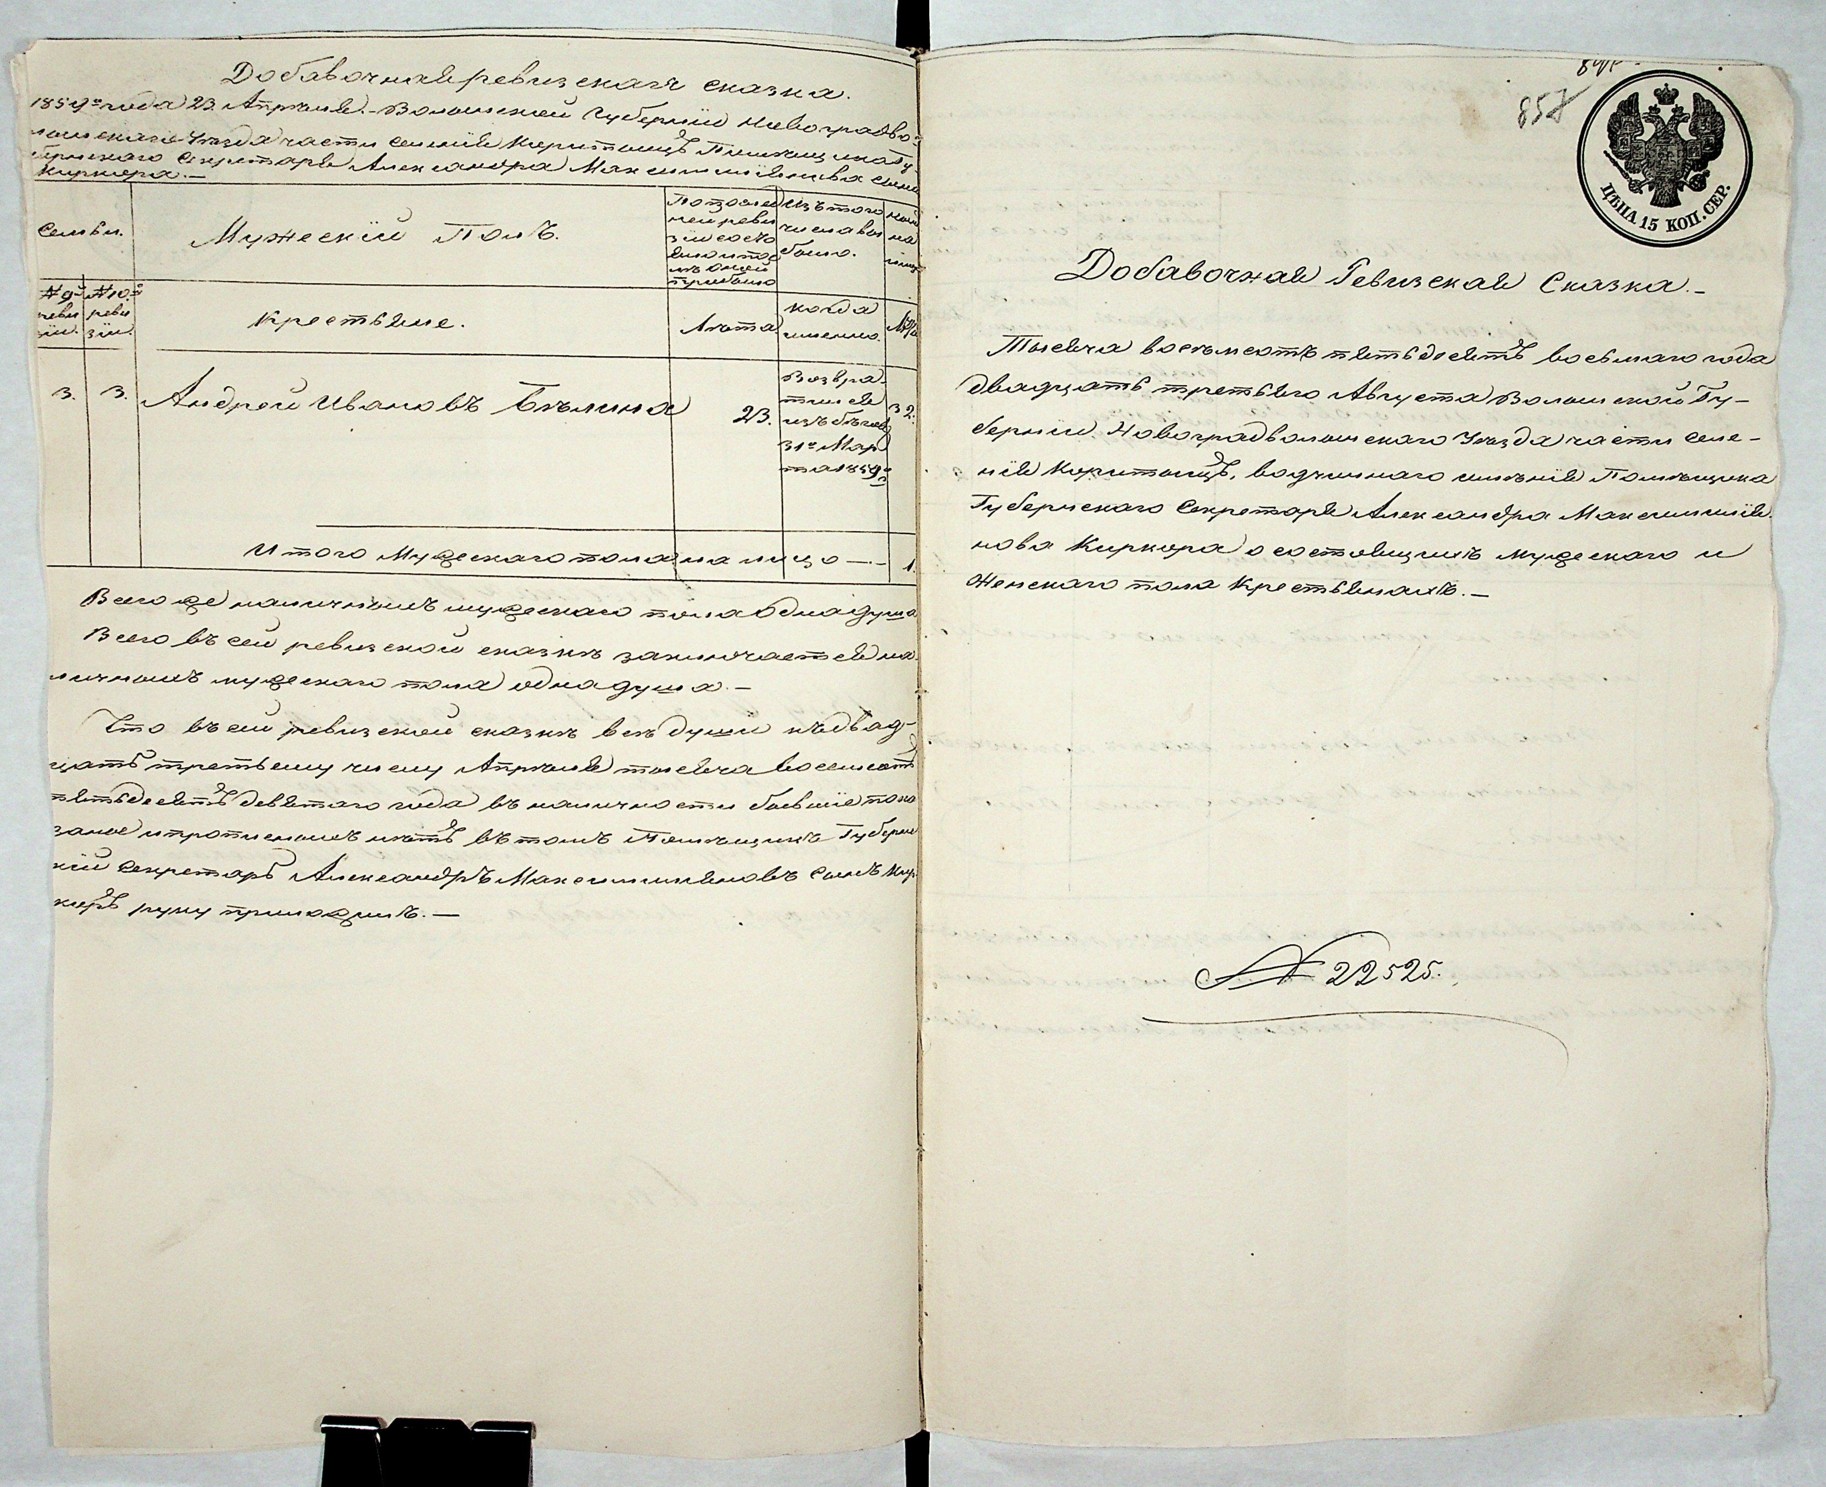 Добавочная ревизская сказка.
1859го года 23 Апреля. Волынской Губерніи Новоградво=
лынскаго Уезда части селенія Корытищъ Помещика Гу
бернскаго Секретаря Александра Максимиліянова сына
Киркора.—
Семьи.
Мужескій Полъ.
По последней ревизіи состояло и после оной прибыло
Изъ того числа выбыло.
Ныне на лицо
№ 9й ревизіи.
№ 10й ревизіи.
Крестьяне.
Лѣта
когда именно.
Лѣта
3. 3. Андрей Ивановъ Бѣлина 23. Возвратился изъ бѣговъ 31го Марта 1859го 32.
Итого Мужескаго пола на лицо — 1.
Всего же наличныхъ мужескаго пола одна душа
Всего въ сей ревизской сказкѣ заключается на
личныхъ мужескаго пола одна душа.—
Что въ сей ревизской сказкѣ всѣ души къ двад-
цать третьему числу Апрѣля тысяча восемсотъ
пятьдесятъ девятого года въ наличности бывшіе пока
заны и прописныхъ нѣтъ въ томъ Помѣщикъ Губернс
кій Секретарь Александръ Максимиліяновъ сынъ Кир
коръ руку приложилъ.—
857
ЦѢНА 15 КОП. СЕР.
Добавочная Ревизская Сказка.—
Тысяча восемьсотъ пятьдесятъ восьмаго года
двадцать третьяго Августа Волынской Гу-
берніи Новоградволынскаго Уѣзда части селе-
нія Корытищъ, водчиннаго имѣнія Помѣщика
Губернскаго Секретаря Александра Максимилія
нова Киркора о состоящихъ мужескаго и
Женскаго пола Крестьянахъ.—
№ 22525.